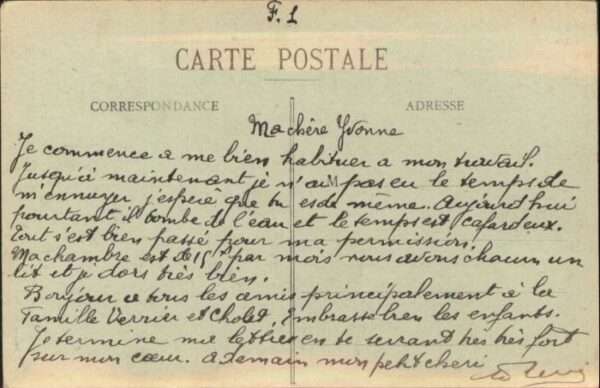 F. 1
CARTE POSTALE
CORRESPONDANCE
ADRESSE
Ma chère Yvonne
Je commence a me bien habituer a mon travail.
Jusqu'à maintenant je n'ai pas eu le temps de
m'ennuyer, j'espère que tu es de même. Aujourd'hui
pourtant il tombe de l'eau et le temps est cafardeux.
Tout s'est bien passé pour ma permission.
Ma chambre est de 15 par mois nous avons chacun un
lit et je dors très bien.
Bonjour a tous les amis principalement à la
famille Verrier et Cholet, embrasse bien les enfants.
Je termine ma lettre en te serrant très très fort
sur mon cœur. a demain mon petit cheri